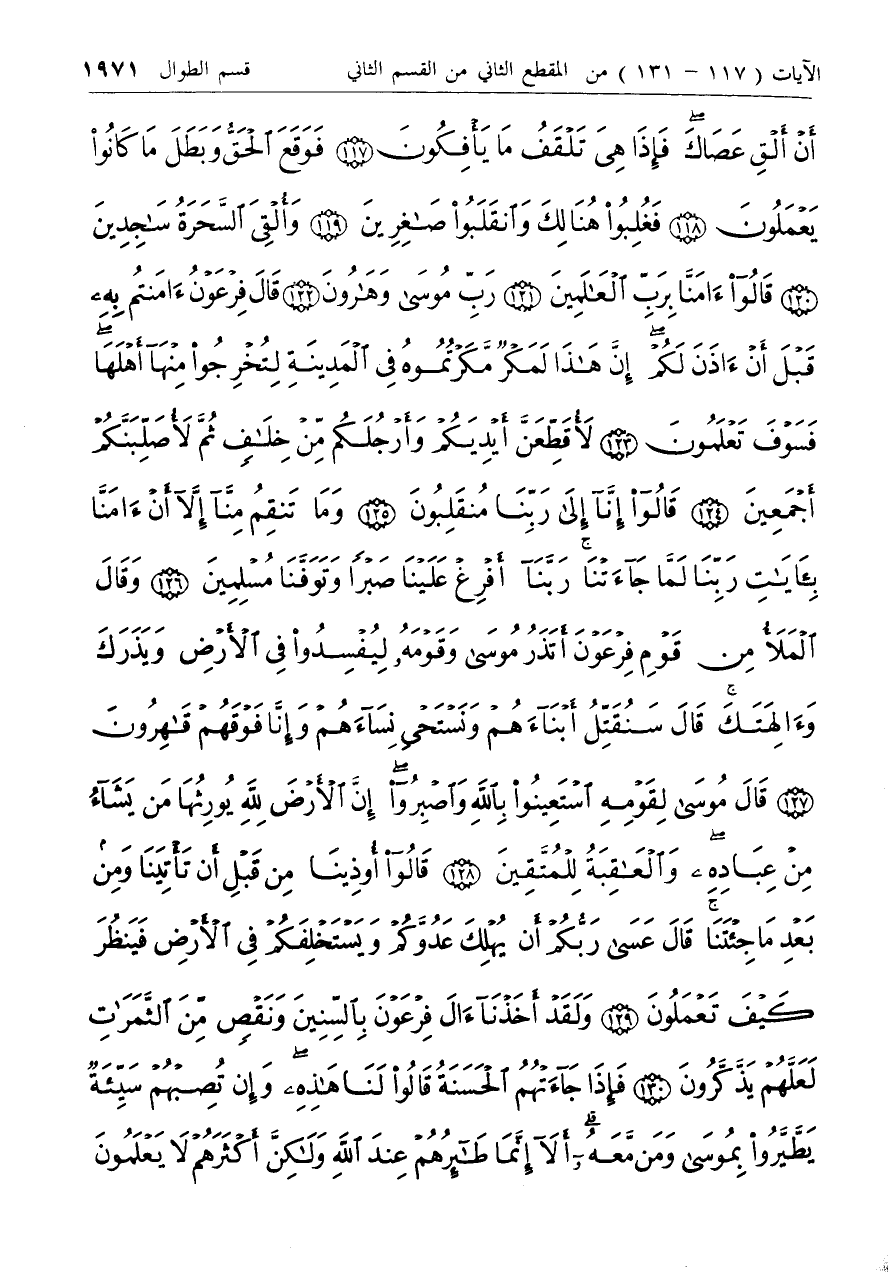 الآيات ( ١١٧ - ١٣١ ) من المقطع الثاني من القسم الثاني قسم الطوال ١٩٧١
أَنْ أَلْقِ عَصَاكَ ۖ فَإِذَا هِىَ تَلْقَفُ مَا يَأْفِكُونَ ﴿١١٧﴾ فَوَقَعَ ٱلْحَقُّ وَبَطَلَ مَا كَانُوا۟
يَعْمَلُونَ ﴿١١٨﴾ فَغُلِبُوا۟ هُنَالِكَ وَٱنقَلَبُوا۟ صَٰغِرِينَ ﴿١١٩﴾ وَأُلْقِىَ ٱلسَّحَرَةُ سَٰجِدِينَ
﴿١٢٠﴾ قَالُوٓا۟ ءَامَنَّا بِرَبِّ ٱلْعَٰلَمِينَ ﴿١٢١﴾ رَبِّ مُوسَىٰ وَهَٰرُونَ ﴿١٢٢﴾ قَالَ فِرْعَوْنُ ءَامَنتُم بِهِۦ
قَبْلَ أَنْ ءَاذَنَ لَكُمْ ۖ إِنَّ هَٰذَا لَمَكْرٌ مَّكَرْتُمُوهُ فِى ٱلْمَدِينَةِ لِتُخْرِجُوا۟ مِنْهَآ أَهْلَهَا ۖ
فَسَوْفَ تَعْلَمُونَ ﴿١٢٣﴾ لَأُقَطِّعَنَّ أَيْدِيَكُمْ وَأَرْجُلَكُم مِّنْ خِلَٰفٍ ثُمَّ لَأُصَلِّبَنَّكُمْ
أَجْمَعِينَ ﴿١٢٤﴾ قَالُوٓا۟ إِنَّآ إِلَىٰ رَبِّنَا مُنقَلِبُونَ ﴿١٢٥﴾ وَمَا تَنقِمُ مِنَّآ إِلَّآ أَنْ ءَامَنَّا
بِـَٔايَٰتِ رَبِّنَا لَمَّا جَآءَتْنَا ۚ رَبَّنَآ أَفْرِغْ عَلَيْنَا صَبْرًا وَتَوَفَّنَا مُسْلِمِينَ ﴿١٢٦﴾ وَقَالَ
ٱلْمَلَأُ مِن قَوْمِ فِرْعَوْنَ أَتَذَرُ مُوسَىٰ وَقَوْمَهُۥ لِيُفْسِدُوا۟ فِى ٱلْأَرْضِ وَيَذَرَكَ
وَءَالِهَتَكَ ۚ قَالَ سَنُقَتِّلُ أَبْنَآءَهُمْ وَنَسْتَحْىِۦ نِسَآءَهُمْ وَإِنَّا فَوْقَهُمْ قَٰهِرُونَ
﴿١٢٧﴾ قَالَ مُوسَىٰ لِقَوْمِهِ ٱسْتَعِينُوا۟ بِٱللَّهِ وَٱصْبِرُوٓا۟ ۖ إِنَّ ٱلْأَرْضَ لِلَّهِ يُورِثُهَا مَن يَشَآءُ
مِنْ عِبَادِهِۦ ۖ وَٱلْعَٰقِبَةُ لِلْمُتَّقِينَ ﴿١٢٨﴾ قَالُوٓا۟ أُوذِينَا مِن قَبْلِ أَن تَأْتِيَنَا وَمِنۢ
بَعْدِ مَا جِئْتَنَا ۚ قَالَ عَسَىٰ رَبُّكُمْ أَن يُهْلِكَ عَدُوَّكُمْ وَيَسْتَخْلِفَكُمْ فِى ٱلْأَرْضِ فَيَنظُرَ
كَيْفَ تَعْمَلُونَ ﴿١٢٩﴾ وَلَقَدْ أَخَذْنَآ ءَالَ فِرْعَوْنَ بِٱلسِّنِينَ وَنَقْصٍ مِّنَ ٱلثَّمَرَٰتِ
لَعَلَّهُمْ يَذَّكَّرُونَ ﴿١٣٠﴾ فَإِذَا جَآءَتْهُمُ ٱلْحَسَنَةُ قَالُوا۟ لَنَا هَٰذِهِۦ ۖ وَإِن تُصِبْهُمْ سَيِّئَةٌ
يَطَّيَّرُوا۟ بِمُوسَىٰ وَمَن مَّعَهُۥٓ ۗ أَلَآ إِنَّمَا طَٰٓئِرُهُمْ عِندَ ٱللَّهِ وَلَٰكِنَّ أَكْثَرَهُمْ لَا يَعْلَمُونَ